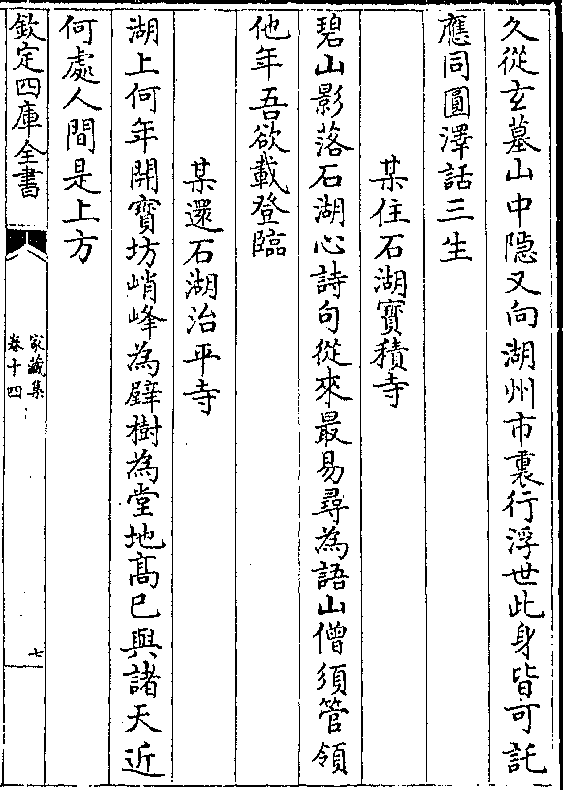 久從玄墓山中隠又向湖州市裏行浮世此身皆可託
應同圓澤話三生
某住石湖寳積寺
碧山影落石湖心詩句從來最易尋為語山僧須管領
他年吾欲載登臨
某還石湖治平寺
湖上何年開寳坊峭峰為壁樹為堂地髙已與諸天近
何處人間是上方
欽定四庫全書
家藏集
卷十四
七